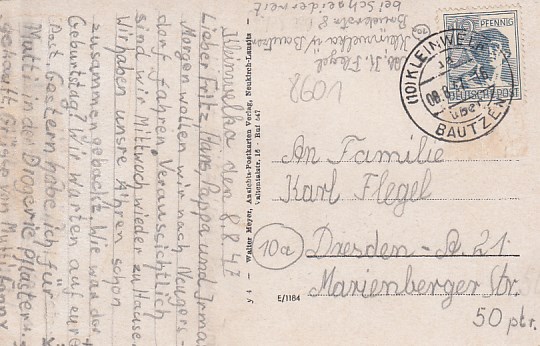 Kleinwelka den 8.8.47
Lieber Fritz, Hans, Pappa und Irma
Morgen wollen wir nach Neugers-
dorf fahren. Veraussichtlich
sind wir Mittwoch wieder zu Hause.
Wir haben unsre Ähren schon
zusammen gebackt. Wie war der
Geburtstag? Wir warten auf eure
Post. Gestern habe ich für
Mutti in der Drogerie Pflaster
gekauft. Grüße von Mutti
Abs. K. Flegel
Kleinwelka ü/ Bautzen
Bautznerstr. 8
bei Schneidermeist.
10a
V098
12 PFENNIG
DEUTSCHE POST
(10) KLEINWELKA
über
BAUTZEN
Walter Meyer, Ansichts-Postkarten Verlag, Neukirch-Lausitz
Valtentalstr. 16 - Ruf 647
An Familie
Karl Flegel
10a Dresden - A. 21
Marienberger Str.
E/1184
50 ptr.